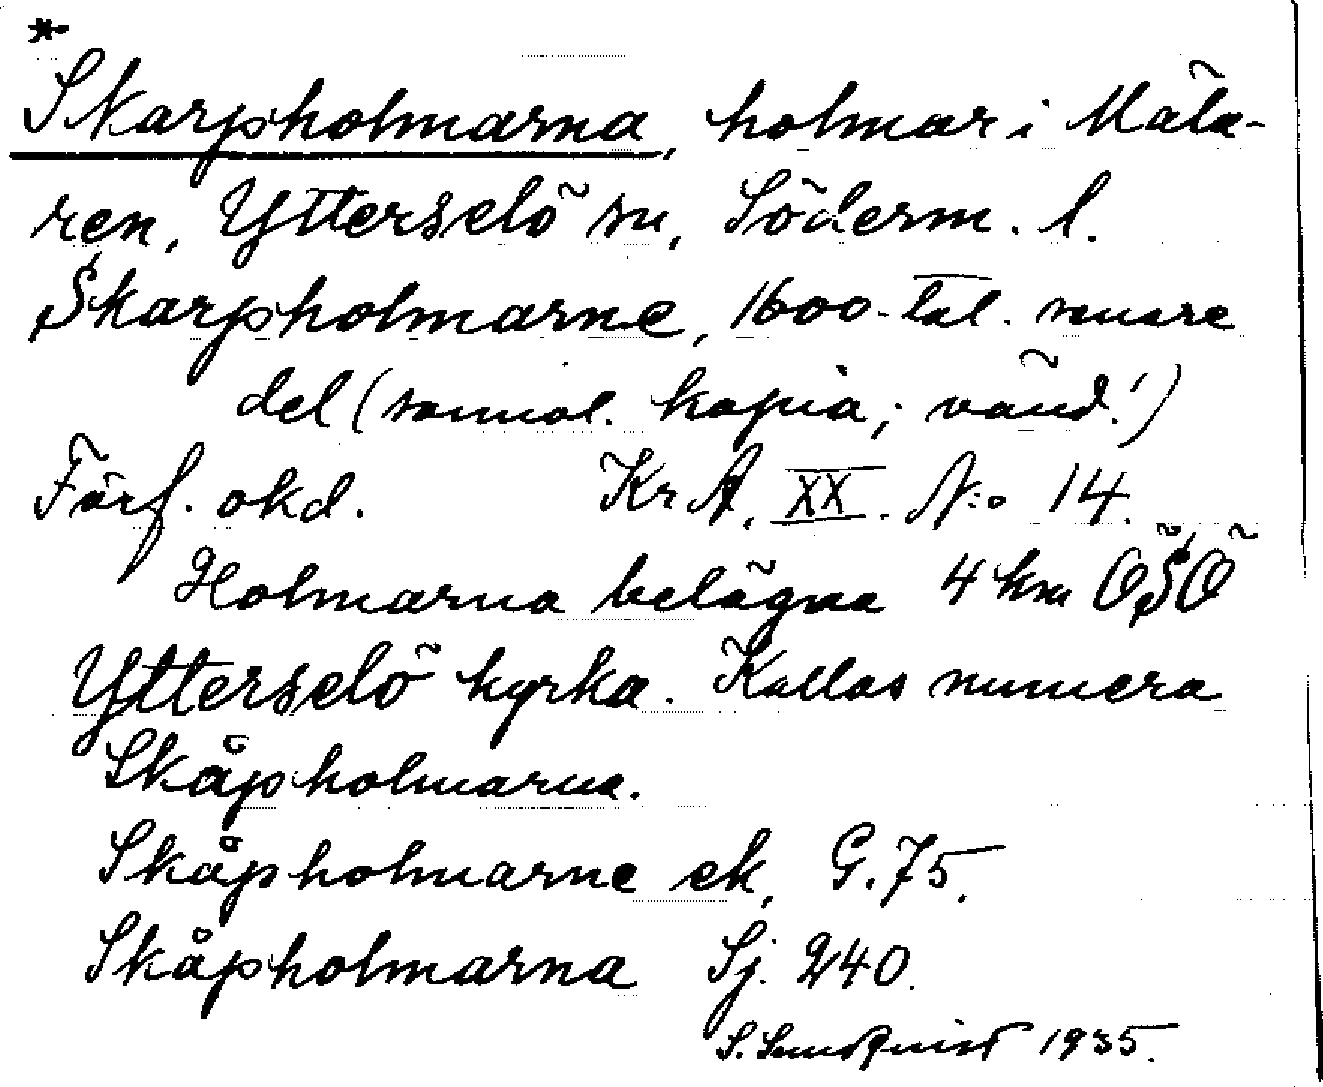 *
Skarpholmarna, holmar i Mäla-
ren, Ytterselö sn, Söderm. l.
Skarpholmarne, 1600-tal. senare
del (samol. kopia; vänd!)
Förf. okd. KrA, XX. N:o 14.
Holmarna belägna 4 km OSO
Ytterselö kyrka. Kallas numera
Skåpholmarna.
Skåpholmarne ek, G. 75.
Skåpholmarna Sj. 240.
S. Sundquist 1935.